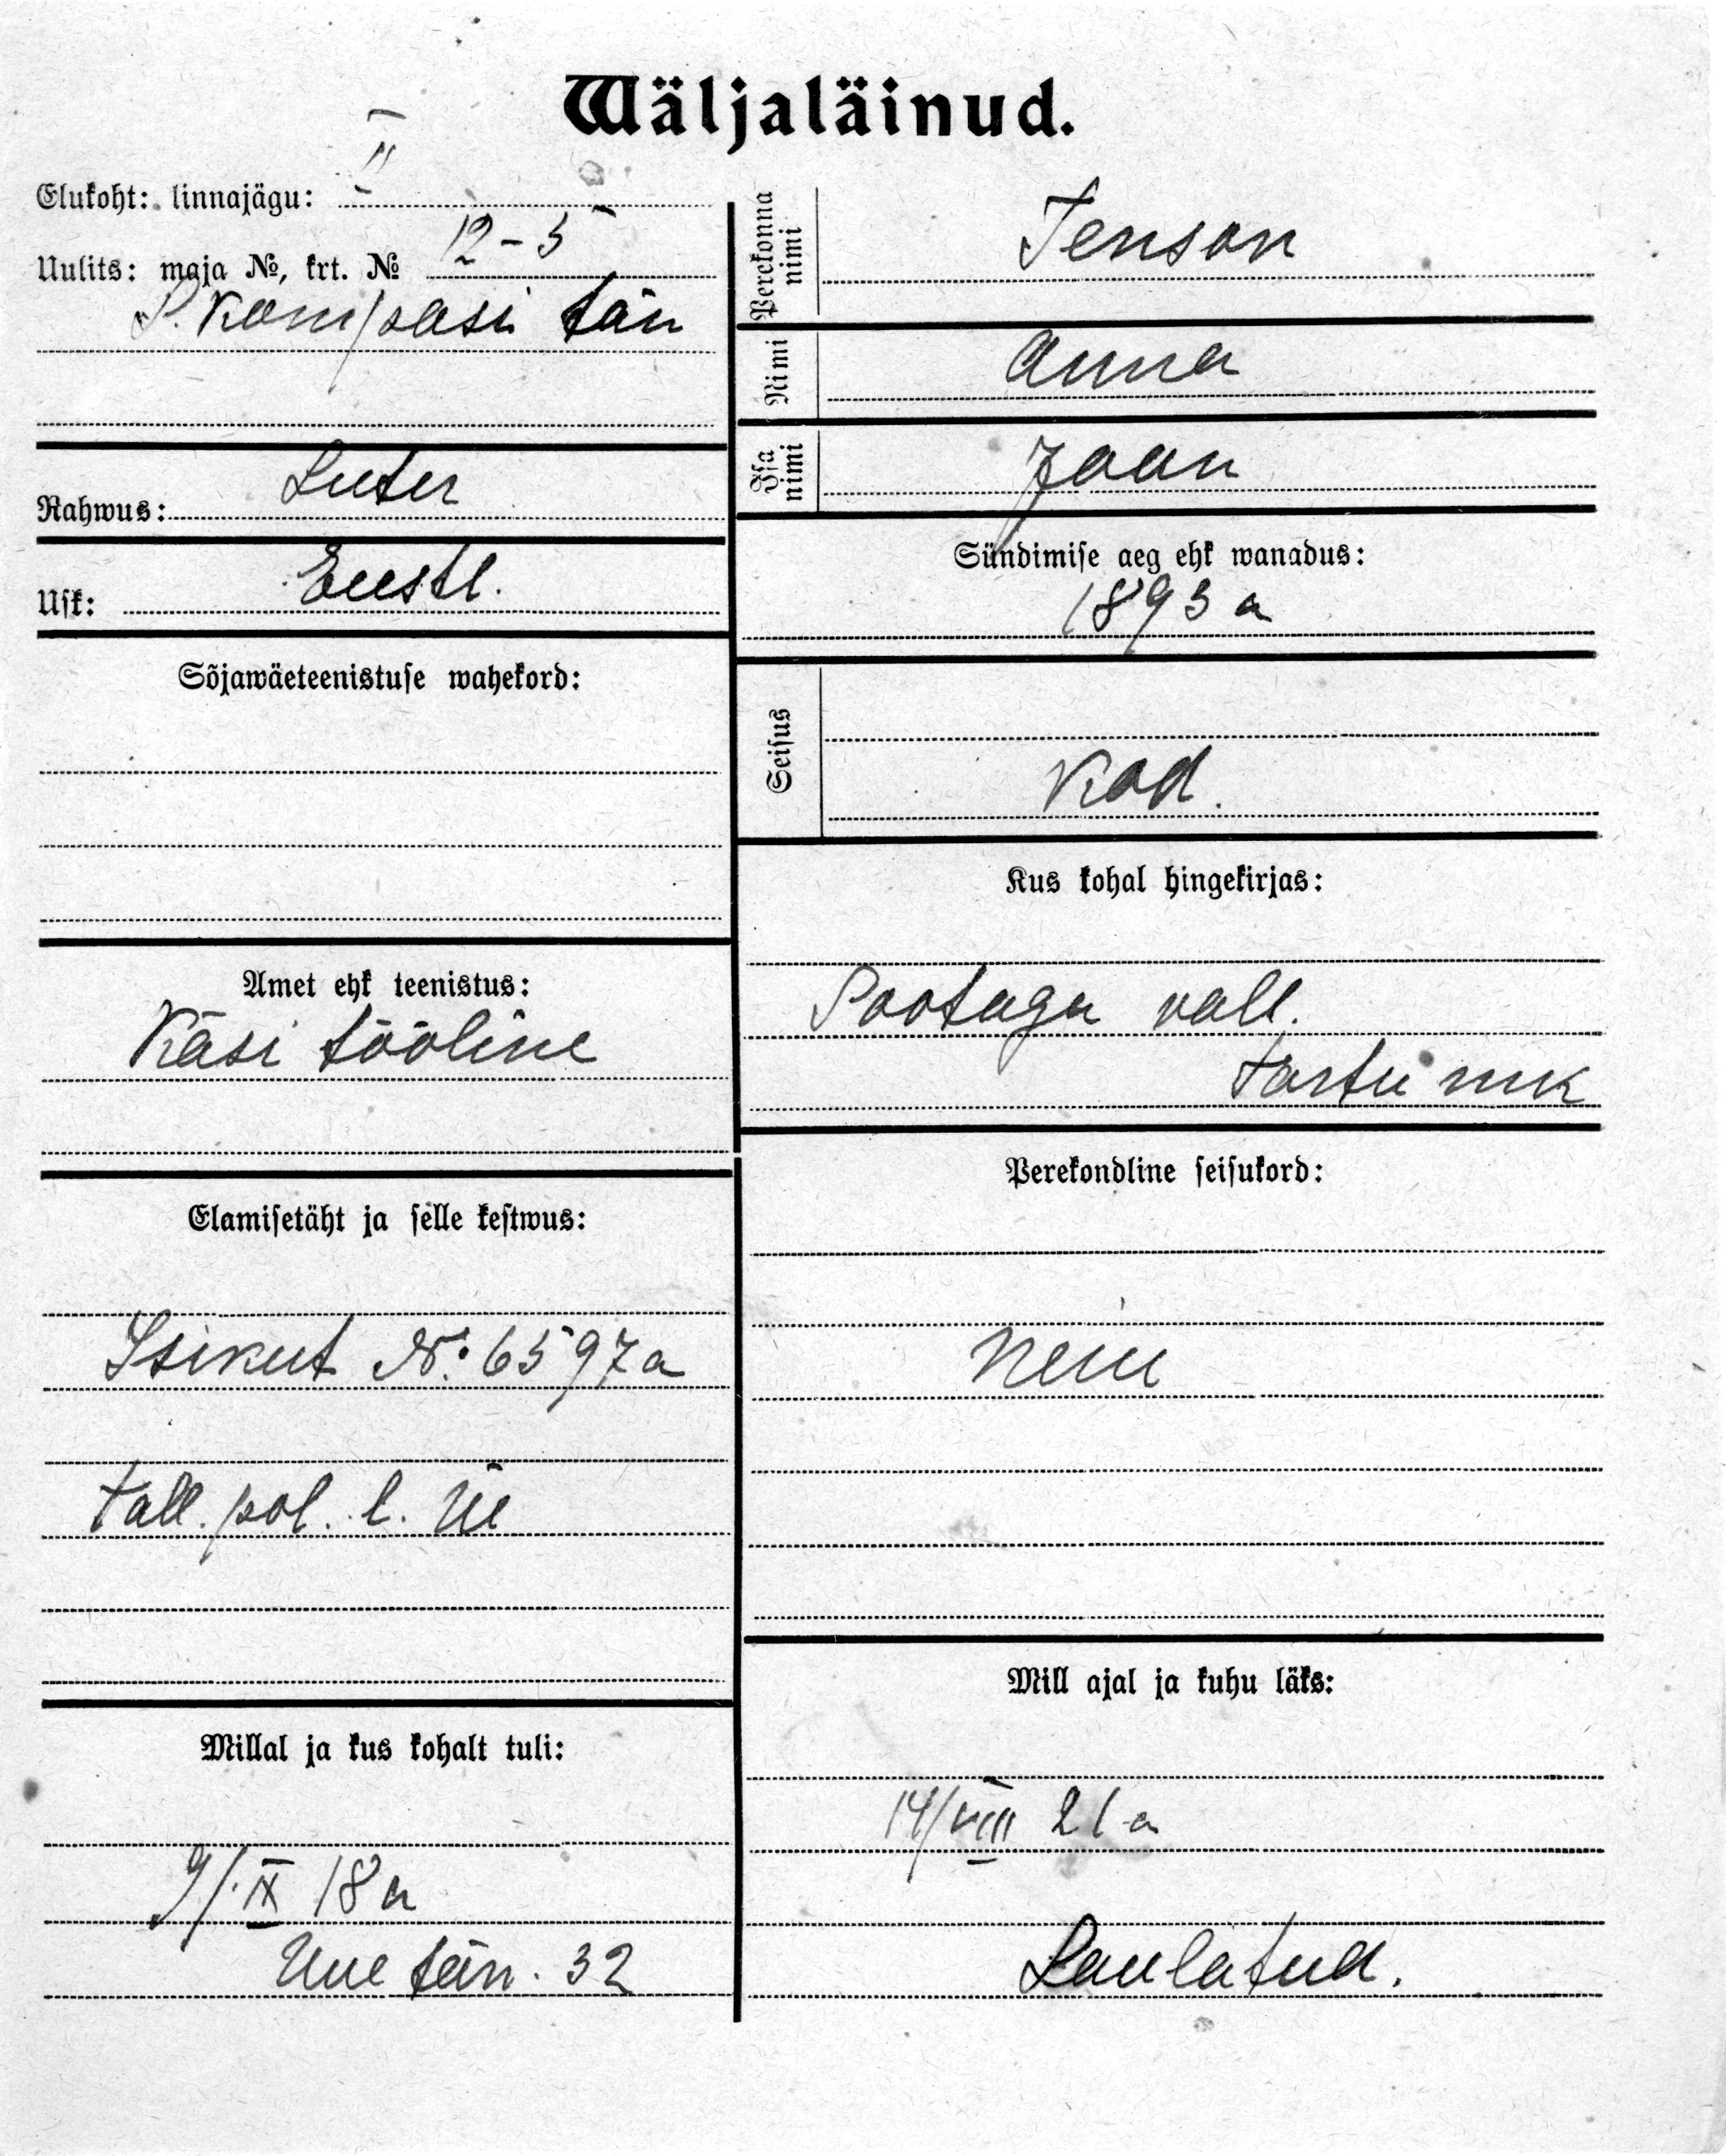 Wäljaläinud.
Elukoht: linnajägu: II
Uulits: maja №, krt. № 12-5
P. Kompasi tän
Rahwus: Luter
Usk: Eestl.
Sõjawäeteenistuse wahekord:
Amet ehk teenistus:
Käsi tööline
Elamisetäht ja selle kestwus:
Isikut №: 6597a
Tall. pol. l. üi
Millal ja kus kohalt tuli:
9/IX 18 a
Uue tän. 32
Perekonna nimi Jenson
Nimi Anna
Isa nimi Jaan
Sündimise aeg ehk wanadus:
1893 a
Seisus
Kod.
Kus kohal hingekirjas:
Sootaga vall.
Tartu mk
Perekondline seisukord:
Neiu
Mill ajal ja kuhu läks:
14/VIII 21 a
Laulatud.